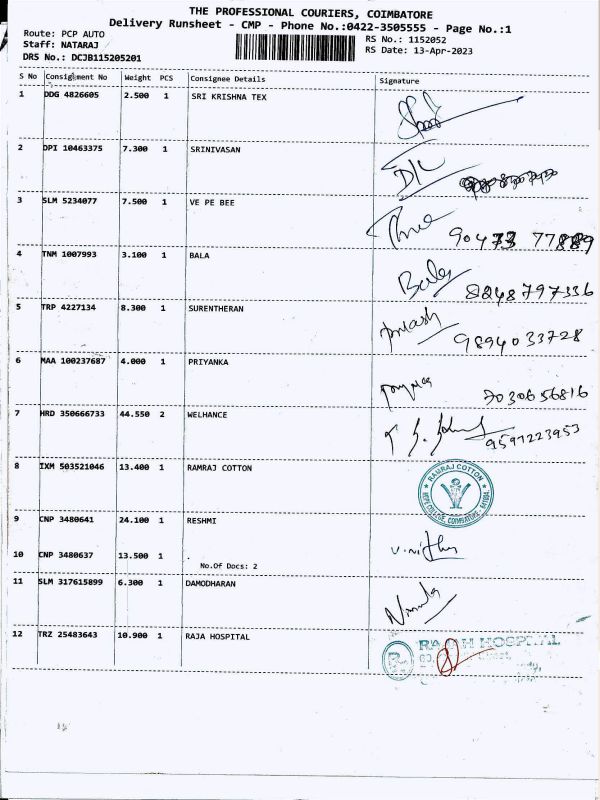 THE PROFESSIONAL COURIERS, COIMBATORE
Delivery Runsheet - CMP - Phone No.:0422-3505555 - Page No.:1
Route: PCP AUTO
Staff: NATARAJ
DRS No.: DCJB115205201
RS No.: 1152052
RS Date: 13-Apr-2023
S No Consignment No Weight PCS Consignee Details Signature
1 DDG 4826605 2.500 1 SRI KRISHNA TEX
2 DPI 10463375 7.300 1 SRINIVASAN
3 SLM 5234077 7.500 1 VE PE BEE
90473 77889
4 TNM 1007993 3.100 1 BALA Bala
8248797336
5 TRP 4227134 8.300 1 SURENTHERAN
9894033728
6 MAA 100237687 4.000 1 PRIYANKA
7030656816
7 HRD 350666733 44.550 2 WELHANCE
9597223953
8 IXM 503521046 13.400 1 RAMRAJ COTTON
RAMRAJ COTTON
HOPE COLLEGE, COIMBATORE
9 CNP 3480641 24.100 1 RESHMI
10 CNP 3480637 13.500 1
No.Of Docs: 2
11 SLM 317615899 6.300 1 DAMODHARAN
12 TRZ 25483643 10.900 1 RAJA HOSPITAL
HOSPITAL